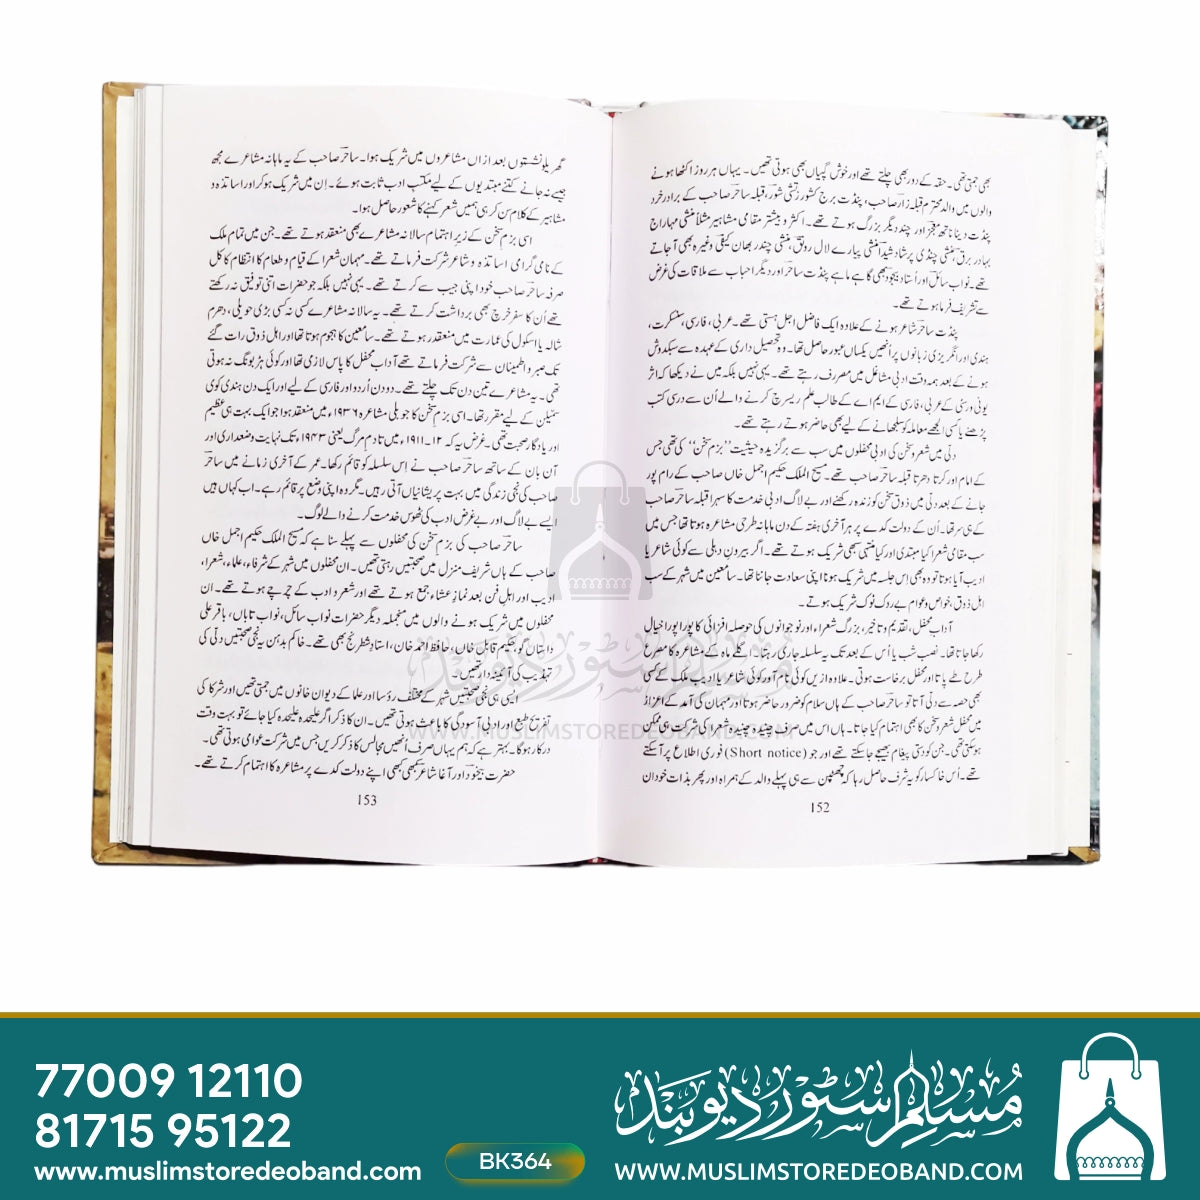 بھی جمتی تھی۔ حقہ کے دور بھی چلتے تھے اور خوش گپیاں بھی ہوتی تھیں۔ یہاں ہر روز اکٹھا ہونے
والوں میں والد محترم قبلہ زار صاحب، پنڈت برج کشور زتشی شور، قبلہ ساحر صاحب کے برادر خرد
پنڈت دینا ناتھ معجز اور چند دیگر بزرگ ہوتے تھے۔ اکثر و بیشتر مقامی مشاہیر مثلاً منشی مہاراج
بہادر برق، منشی چنڈی پرشاد شیدا، منشی پیارے لال رونق، منشی چندر بھان کیفی وغیرہ بھی آجاتے
تھے۔ نواب سائل اور اُستاد بیخود بھی گاہے ماہے پنڈت ساحر اور دیگر احباب سے ملاقات کی غرض
سے تشریف فرما ہوتے تھے۔
پنڈت ساحر شاعر ہونے کے علاوہ ایک فاضل اجل ہستی تھے۔ عربی، فارسی، سنسکرت،
ہندی اور انگریزی زبانوں پر اُنھیں یکساں عبور حاصل تھا۔ وہ تحصیل داری کے عہدہ سے سبکدوش
ہونے کے بعد ہمہ وقت ادبی مشاغل میں مصرف رہتے تھے۔ یہی نہیں بلکہ میں نے دیکھا کہ اکثر
یونی ورسٹی کے عربی، فارسی کے ایم اے کے طالب علم ریسرچ کرنے والے اُن سے درسی کتب
پڑھنے یا کسی الجھے معاملہ کو سلجھانے کے لیے بھی حاضر ہوتے رہتے تھے۔
دلی میں شعر و سخن کی ادبی محفلوں میں سب سے برگزیدہ حیثیت ”بزم سخن“ کی تھی جس
کے امام اور کرتا دھرتا قبلہ ساحر صاحب تھے۔ مسیح الملک حکیم اجمل خاں صاحب کے رام پور
جانے کے بعد دلی میں ذوق سخن کو زندہ رکھنے اور بے لاگ ادبی خدمت کا سہرا قبلہ ساحر صاحب
کے ہی سر تھا۔ اُن کے دولت کدے پر ہر آخری ہفتہ کے دن ماہانہ طرحی مشاعرہ ہوتا تھا جس میں
سب مقامی شعرا کیا مبتدی اور کیا منتہی سبھی شریک ہوتے تھے۔ اگر بیرونِ دہلی سے کوئی شاعر یا
ادیب آیا ہوتا تو وہ بھی اس جلسہ میں شریک ہونا اپنی سعادت جانتا تھا۔ سامعین میں شہر کے سب
اہل ذوق، خواص و عوام بے روک ٹوک شریک ہوتے۔
آداب محفل، تقدیم و تاخیر، بزرگ شعراء اور نوجوانوں کی حوصلہ افزائی کا پورا پورا خیال
رکھا جاتا تھا۔ نصب شب یا اُس کے بعد تک یہ سلسلہ جاری رہتا۔ اگلے ماہ کے مشاعرہ کا مصرع
طرح طے پاتا اور محفل برخاست ہوتی۔ علاوہ ازیں کوئی نام آور کوئی شاعر یا ادیب ملک کے کسی
حصہ سے دلی آتا تو ساحر صاحب کے ہاں سلام کو ضرور حاضر ہوتا اور مہمان کی آمد کے اعزاز
میں محفل شعر و سخن کا بھی اہتمام کیا جاتا۔ ہاں اس میں صرف چنیدہ چنیدہ شعرا کی شرکت ہی ممکن
ہوسکتی تھی۔ جن کو دستی پیغام بھیجے جاسکتے تھے اور جو (Short notice) فوری اطلاع پر آسکتے
تھے۔ اُس خاکسار کو یہ شرف حاصل رہا کہ چھٹپن سے ہی پہلے والد کے ہمراہ اور پھر بذات خود ان
152
گھریلو نشستوں بعد ازاں مشاعروں میں شریک ہوا۔ ساحر صاحب کے یہ ماہانہ مشاعرے مجھ
جیسے نہ جانے کتنے مبتدیوں کے لیے مکتب ادب ثابت ہوئے۔ اِن میں شریک ہوکر اور اساتذہ و
مشاہیر کے کلام سن کر ہی ہمیں شعر کہنے کا شعور حاصل ہوا۔
اسی بزم سخن کے زیر اہتمام سالانہ مشاعرے بھی منعقد ہوتے تھے۔ جن میں تمام ملک
کے نامی گرامی اساتذہ و شاعر شرکت فرماتے تھے۔ مہمان شعرا کے قیام و طعام کا انتظام کا کل
صرفہ ساحر صاحب خود اپنی جیب سے کرتے تھے۔ یہی نہیں بلکہ جو حضرات اتنی توفیق نہ رکھتے
تھے اُن کا سفر خرچ بھی برداشت کرتے تھے۔ یہ سالانہ مشاعرے کسی نہ کسی بڑی حویلی، دھرم
شالہ یا اسکول کی عمارت میں منعقد ہوتے تھے۔ سامعین کا ہجوم ہوتا تھا اور اہل ذوق رات گئے
تک صبر و اطمینان سے شرکت فرماتے تھے آداب محفل کا پاس لازمی تھا اور کوئی ہڑبونگ نہ ہوتی
تھی۔ یہ مشاعرے تین دن تک چلتے تھے۔ دو دن اُردو اور فارسی کے لیے اور ایک دن ہندی کوی
سمّیلن کے لیے مقرر تھا۔ اسی بزم سخن کا جوبلی مشاعرہ ۱۹۳۶ء میں منعقد ہوا جو ایک بہت ہی عظیم
اور یادگار صحبت تھی۔ غرض یہ کہ ۱۲۔۱۹۱۱ء میں تا دم مرگ یعنی ۱۹۴۳ء تک نہایت وضعداری اور
آن بان کے ساتھ ساحر صاحب نے اس سلسلہ کو قائم رکھا۔ عمر کے آخری زمانے میں ساحر
صاحب کی نجی زندگی میں بہت پریشانیاں آتی رہیں۔ مگر وہ اپنی وضع پر قائم رہے۔ اب کہاں ہیں
ایسے بے لاگ اور بے غرض ادب کی ٹھوس خدمت کرنے والے لوگ۔
ساحر صاحب کی بزم سخن کی محفلوں سے پہلے سنا ہے کہ مسیح الملک حکیم اجمل خاں
صاحب کے ہاں شریف منزل میں صحبتیں رہتی تھیں۔ ان محفلوں میں شہر کے شرفاء، علماء، شعراء،
ادیب اور اہل فن بعد نماز عشاء جمع ہوتے تھے اور شعر و ادب کے چرچے ہوتے تھے۔ ان
محفلوں میں شریک ہونے والوں میں منجملہ دیگر حضرات نواب سائل، نواب تاباں، باقر علی
داستان گو، حکیم قابل خاں، حافظ احمد خان، استادِ شطرنج بھی تھے۔ خاکم بدہن یہ نجی صحبتیں دلی کی
تہذیب کی آئینہ دار تھیں۔
ایسی ہی نجی صحبتیں شہر کے مختلف رؤسا اور علما کے دیوان خانوں میں جمتی تھیں اور شرکا کی
تفریح طبع اور ادبی آسودگی کا باعث ہوتی تھیں۔ ان کا ذکر اگر علیحدہ علیحدہ کیا جائے تو بہت وقت
درکار ہوگا۔ بہتر ہے کہ ہم یہاں صرف اُنھیں مجالس کا ذکر کریں جس میں شرکت عوامی ہوتی تھی۔
حضرت بیخود اور آغا شاعر کبھی کبھی اپنے دولت کدے پر مشاعرہ کا اہتمام کرتے تھے۔
153
مسلم سٹور دیوبند
WWW.MUSLIMSTOREDEOBAND.COM
77009 12110
81715 95122
www.muslimstoredeoband.com
BK364
مسلم سٹور دیوبند
WWW.MUSLIMSTOREDEOBAND.COM